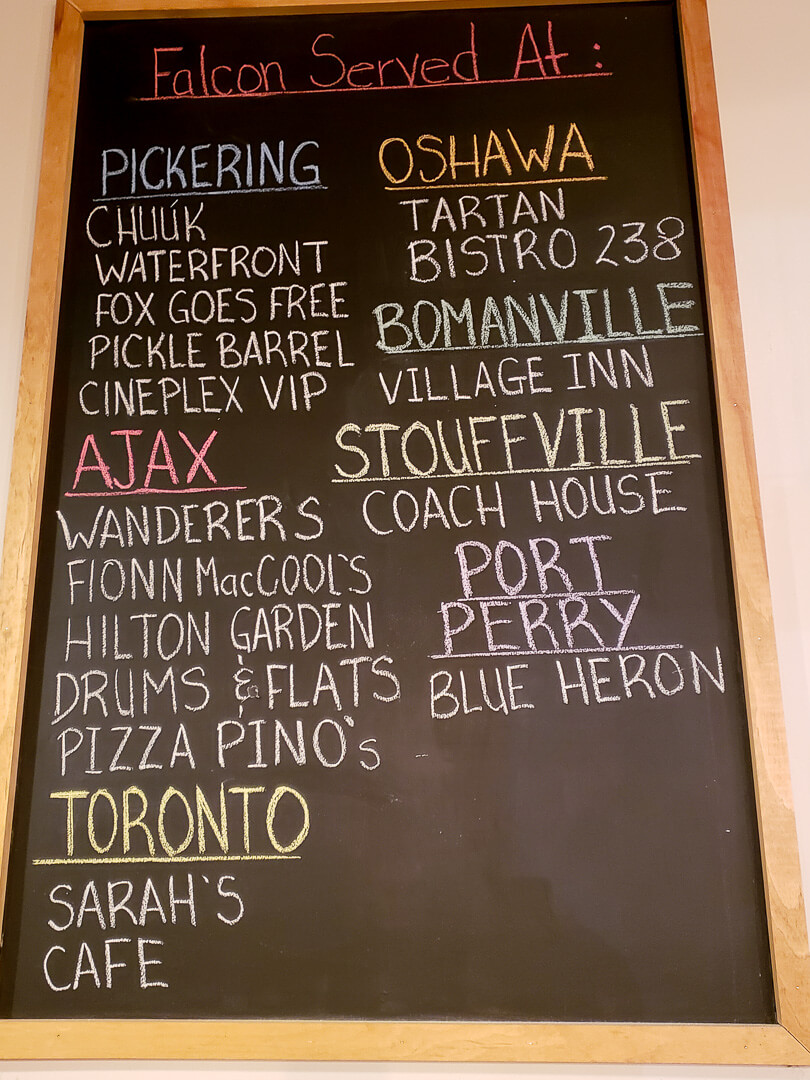 Falcon Served At:
PICKERING
CHUÚK
WATERFRONT
FOX GOES FREE
PICKLE BARREL
CINEPLEX VIP
AJAX
WANDERERS
FIONN MacCOOL'S
HILTON GARDEN
DRUMS & FLATS
PIZZA PINO's
TORONTO
SARAH'S
CAFE
OSHAWA
TARTAN
BISTRO 238
BOMANVILLE
VILLAGE INN
STOUFFVILLE
COACH HOUSE
PORT
PERRY
BLUE HERON